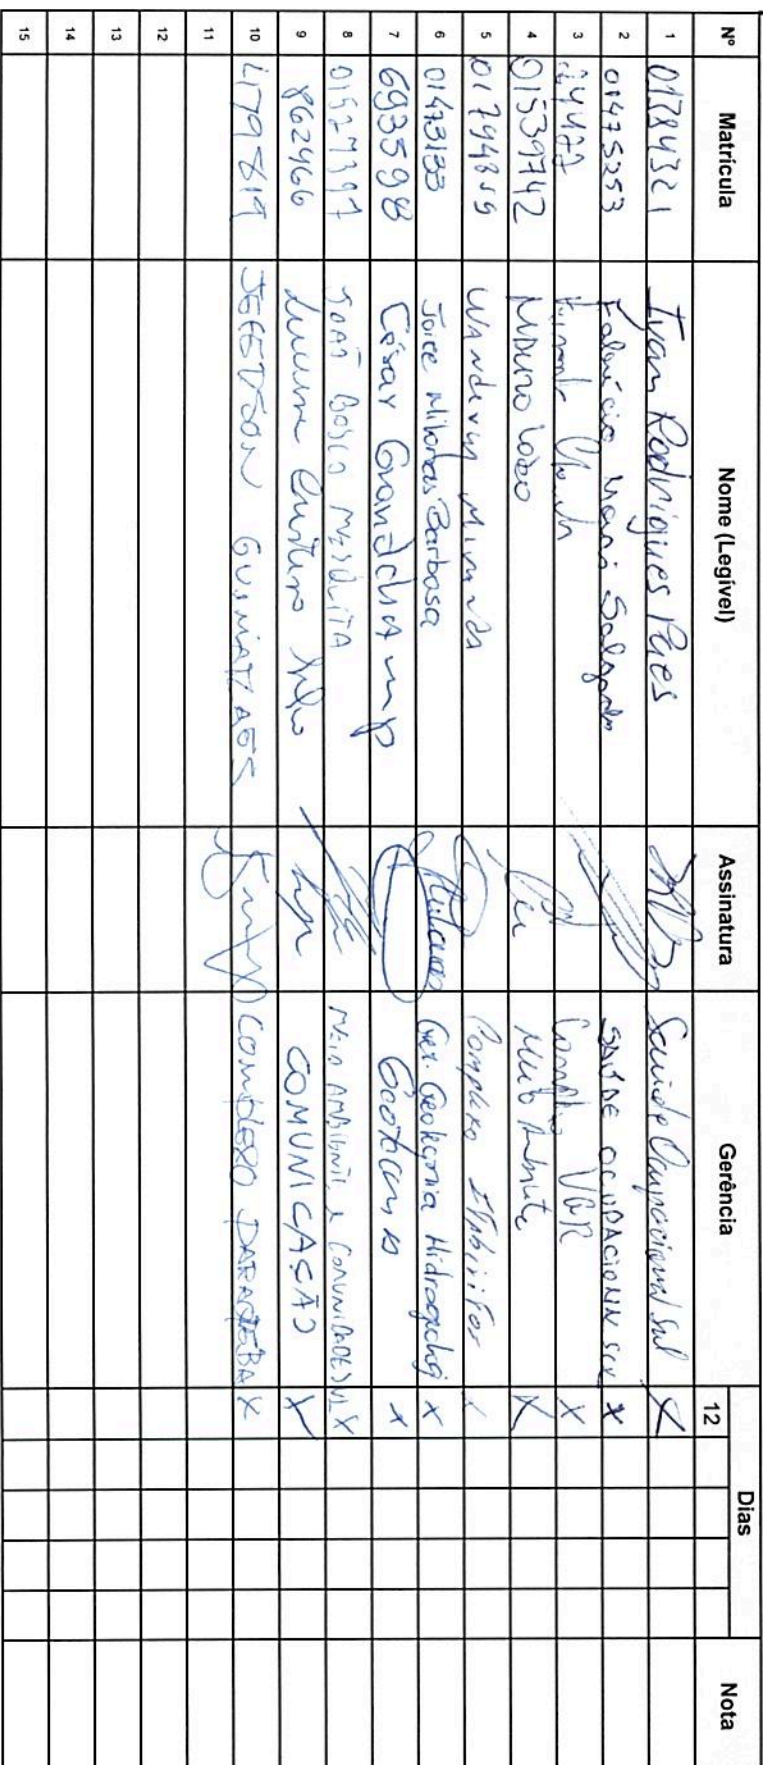 Nº Matrícula Nome (Legível) Assinatura Gerência Dias Nota
12
1 01784321 Ivan Rodrigues Paes Saúde Ocupacional Sul X
2 01475253 Salgado SAÚDE OCUPACIONAL SUL X
3 VGR X
4 01539742 Mauro Lobo Meio Ambiente X
5 01794859 Wanderson Miranda Complexo X
6 01473133 Joice Barbosa Ger. Geotecnia Hidrogeologi X
7 6935998 César Grandchamp Geotecnia X
8 01527397 JOÃO BOSCO MESQUITA MEIO AMBIENTE E COMUNIDADE SUL X
9 862466 COMUNICAÇÃO X
10 JEFERSON GUIMARÃES COMPLEXO PARAOPEBA X
11
12
13
14
15